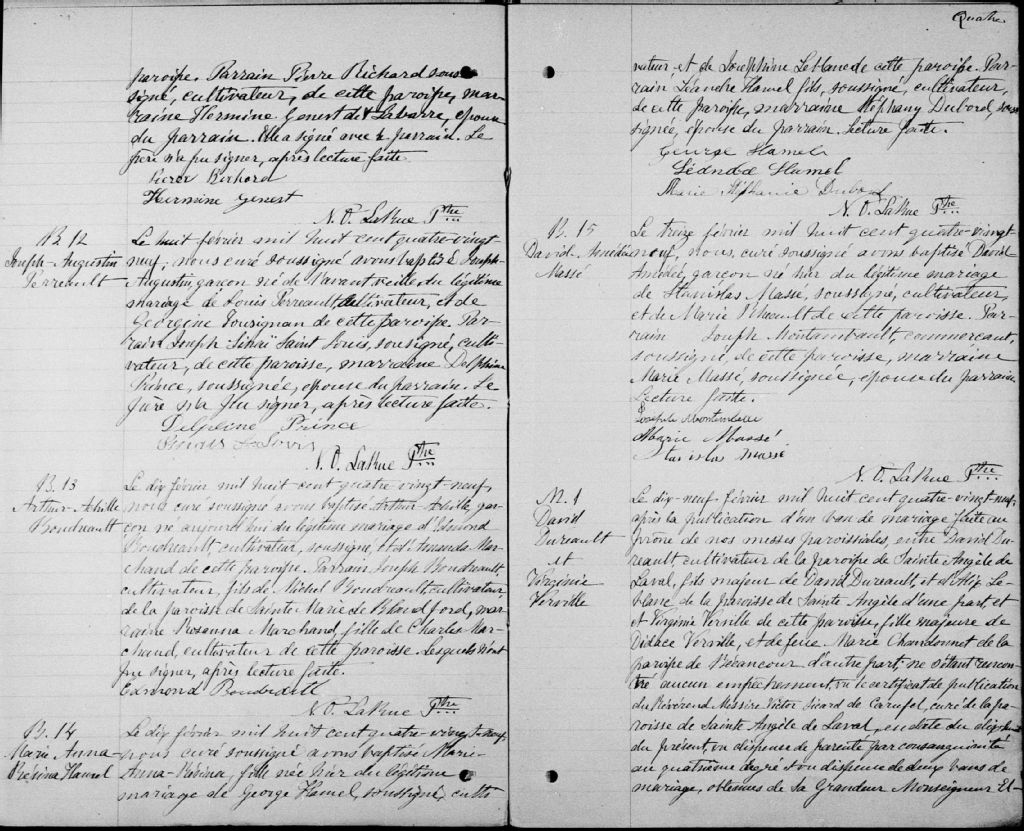 paroisse. Parrain Pierre Richard sous-
signé, cultivateur, de cette paroisse, mar-
raine Hermine Genest dit Labarre, épouse
du parrain. Elle a signé avec le parrain. Le
père n'a pu signer, après lecture faite.
Pierre Richard
Hermine Genest
N. O. LaRue Ptre
B. 12
Joseph-Augustin
Perreault
Le huit février mil huit cent quatre-vingt
neuf, nous curé soussigné avons baptisé Joseph-
Augustin, garçon né de l'avant veille du légitime
mariage de Louis Perreault, cultivateur, et de
Georgine Tousignan de cette paroisse. Par-
rain Joseph Saint Louis, soussigné, culti-
vateur, de cette paroisse, marraine Delphine
Prince, soussignée, épouse du parrain. Le
père n'a pu signer, après lecture faite.
Delphine Prince
St Louis
N. O. LaRue Ptre
B. 13
Arthur-Achille
Boudreault
Le dix février mil huit cent quatre-vingt-neuf,
nous curé soussigné avons baptisé Arthur-Achille, gar-
çon né aujourd'hui du légitime mariage d'Edmond
Boudreault, cultivateur, soussigné, et d'Amanda Mar-
chand de cette paroisse. Parrain Joseph Boudreault,
cultivateur, fils de Michel Boudreault, cultivateur,
de la paroisse de Sainte Marie de Blandford, mar-
raine Rosanna Marchand, fille de Charles Mar-
chand, cultivateur de cette paroisse lesquels n'ont
pu signer, après lecture faite.
Edmond Boudreault
N. O. LaRue Ptre
B. 14
Marie-Anna-
Résina Hamel
Le dix février mil huit cent quatre-vingt-neuf,
nous curé soussigné avons baptisé Marie-
Anna-Résina, fille née hier du légitime
mariage de George Hamel, soussigné, culti-
Quatre
vateur, et de Josephine Leblanc de cette paroisse. Par-
rain Léandre Hamel fils, soussigné, cultivateur,
de cette paroisse, marraine Stéphany Dubord, sous-
signée, épouse du parrain. Lecture faite.
George Hamel
Léandre Hamel
Marie Stéphanie Dubord
N. O. LaRue Ptre
B. 15
David-Amédée
Massé
Le treize février mil huit cent quatre-vingt
neuf, nous, curé soussigné avons baptisé David-
Amédée, garçon né hier du légitime mariage
de Stanislas Massé, soussigné, cultivateur,
et de Marie Rheault de cette paroisse. Par-
rain Joseph Montambault, commerçant,
soussigné, de cette paroisse, marraine
Marie Massé, soussignée, épouse du parrain.
Lecture faite.
Joseph Montambault
Marie Massé
Stanislas Massé
N. O. LaRue Ptre
M. 1
David
Dureault
et
Virginie
Verville
Le dix-neuf février mil huit cent quatre-vingt-neuf,
après la publication d'un ban de mariage faite au
prône de nos messes paroissiales, entre David Du-
reault, cultivateur de la paroisse de Sainte Angèle de
Laval, fils majeur de David Dureault, et d'Alix Le-
blanc de la paroisse de Sainte Angèle d'une part, et
et Virginie Verville de cette paroisse, fille majeure de
Didace Verville, et de feue Marie Chandonnet de la
paroisse de Bécancour d'autre part, ne s'étant rencon-
tré aucun empêchement, vu le certificat de publication
du Révérend Messire Victor Sicard de Carufel, curé de la pa-
roisse de Sainte Angèle de Laval, en date du
du présent, vu dispense de parenté par consanguinité
au quatrième degré et vu dispense de deux bans de
mariage, obtenues de Sa Grandeur Monseigneur El-